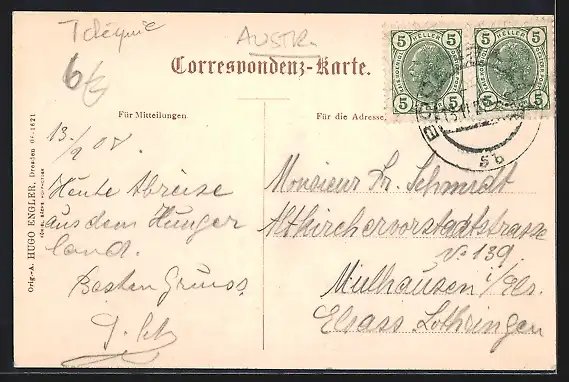 AUSTR.
6
Correspondenz-Karte.
5 HELLER 5
5 5
5 HELLER 5
5 5
5b
Für Mitteilungen
Für die Adresse
13/2 08.
Heute Abreise
aus dem Hunger
land.
Besten Gruss.
Monsieur Fr. Schmidt
Altkirchervorstadtstrasse
No 139.
Mülhausen i/Els.
Elsass Lothringen
Orig.-A. HUGO ENGLER, Dresden 08-1621